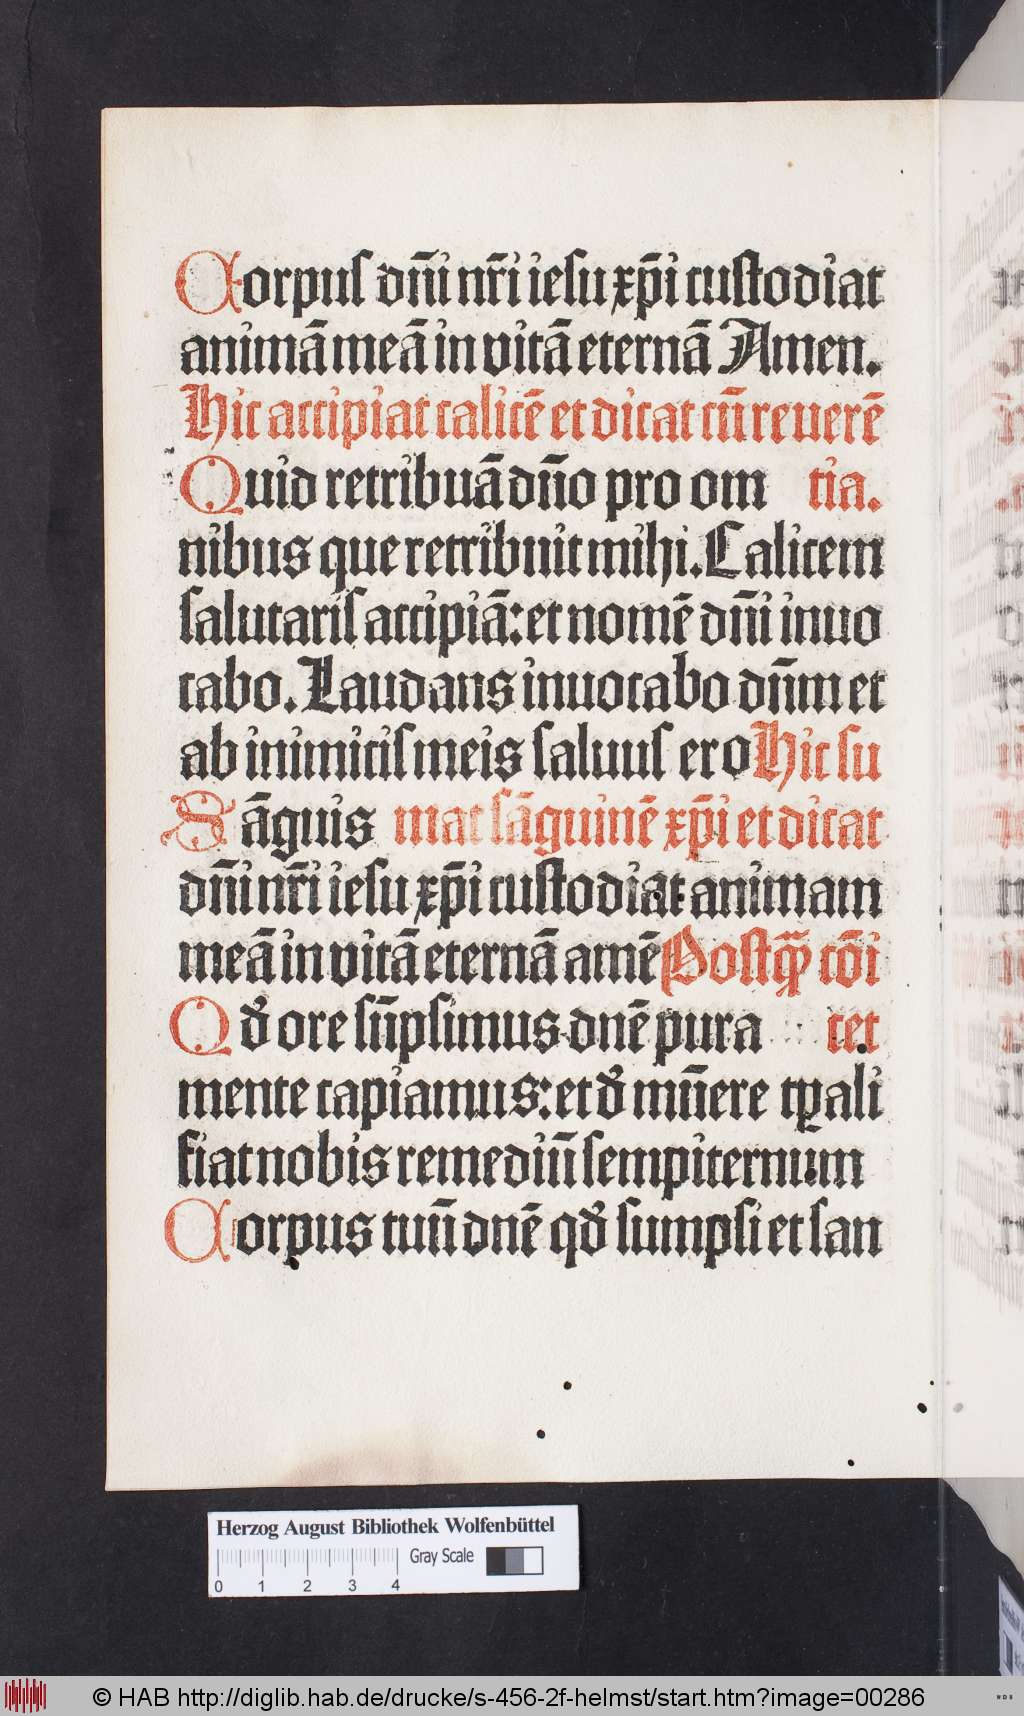 Corpus dn̄i nr̄i iesu xp̄i custodiat
animā meā in vitā eternā Amen.
Hic accipiat calicē et dicat cū reuerē
tia.
Quid retribuā dn̄o pro om
nibus que retribuit mihi. Calicem
salutaris accipiā: et nomē dn̄i inuo
cabo. Laudans inuocabo dn̄m et
ab inimicis meis saluus ero Hic su
mat sāguinē xp̄i et dicat
Sāguis
dn̄i nr̄i iesu xp̄i custodiat animam
meā in vitā eternā amē Postꝙ̄ cōi
cet
Qd̛ ore sūpsimus dnē pura
mente capiamus: et d̛ mūere tꝑali
fiat nobis remediū sempiternum
Corpus tuū dnē qd̛ sumpsi et san
Herzog August Bibliothek Wolfenbüttel
Gray Scale
0 1 2 3 4
© HAB http://diglib.hab.de/drucke/s-456-2f-helmst/start.htm?image=00286